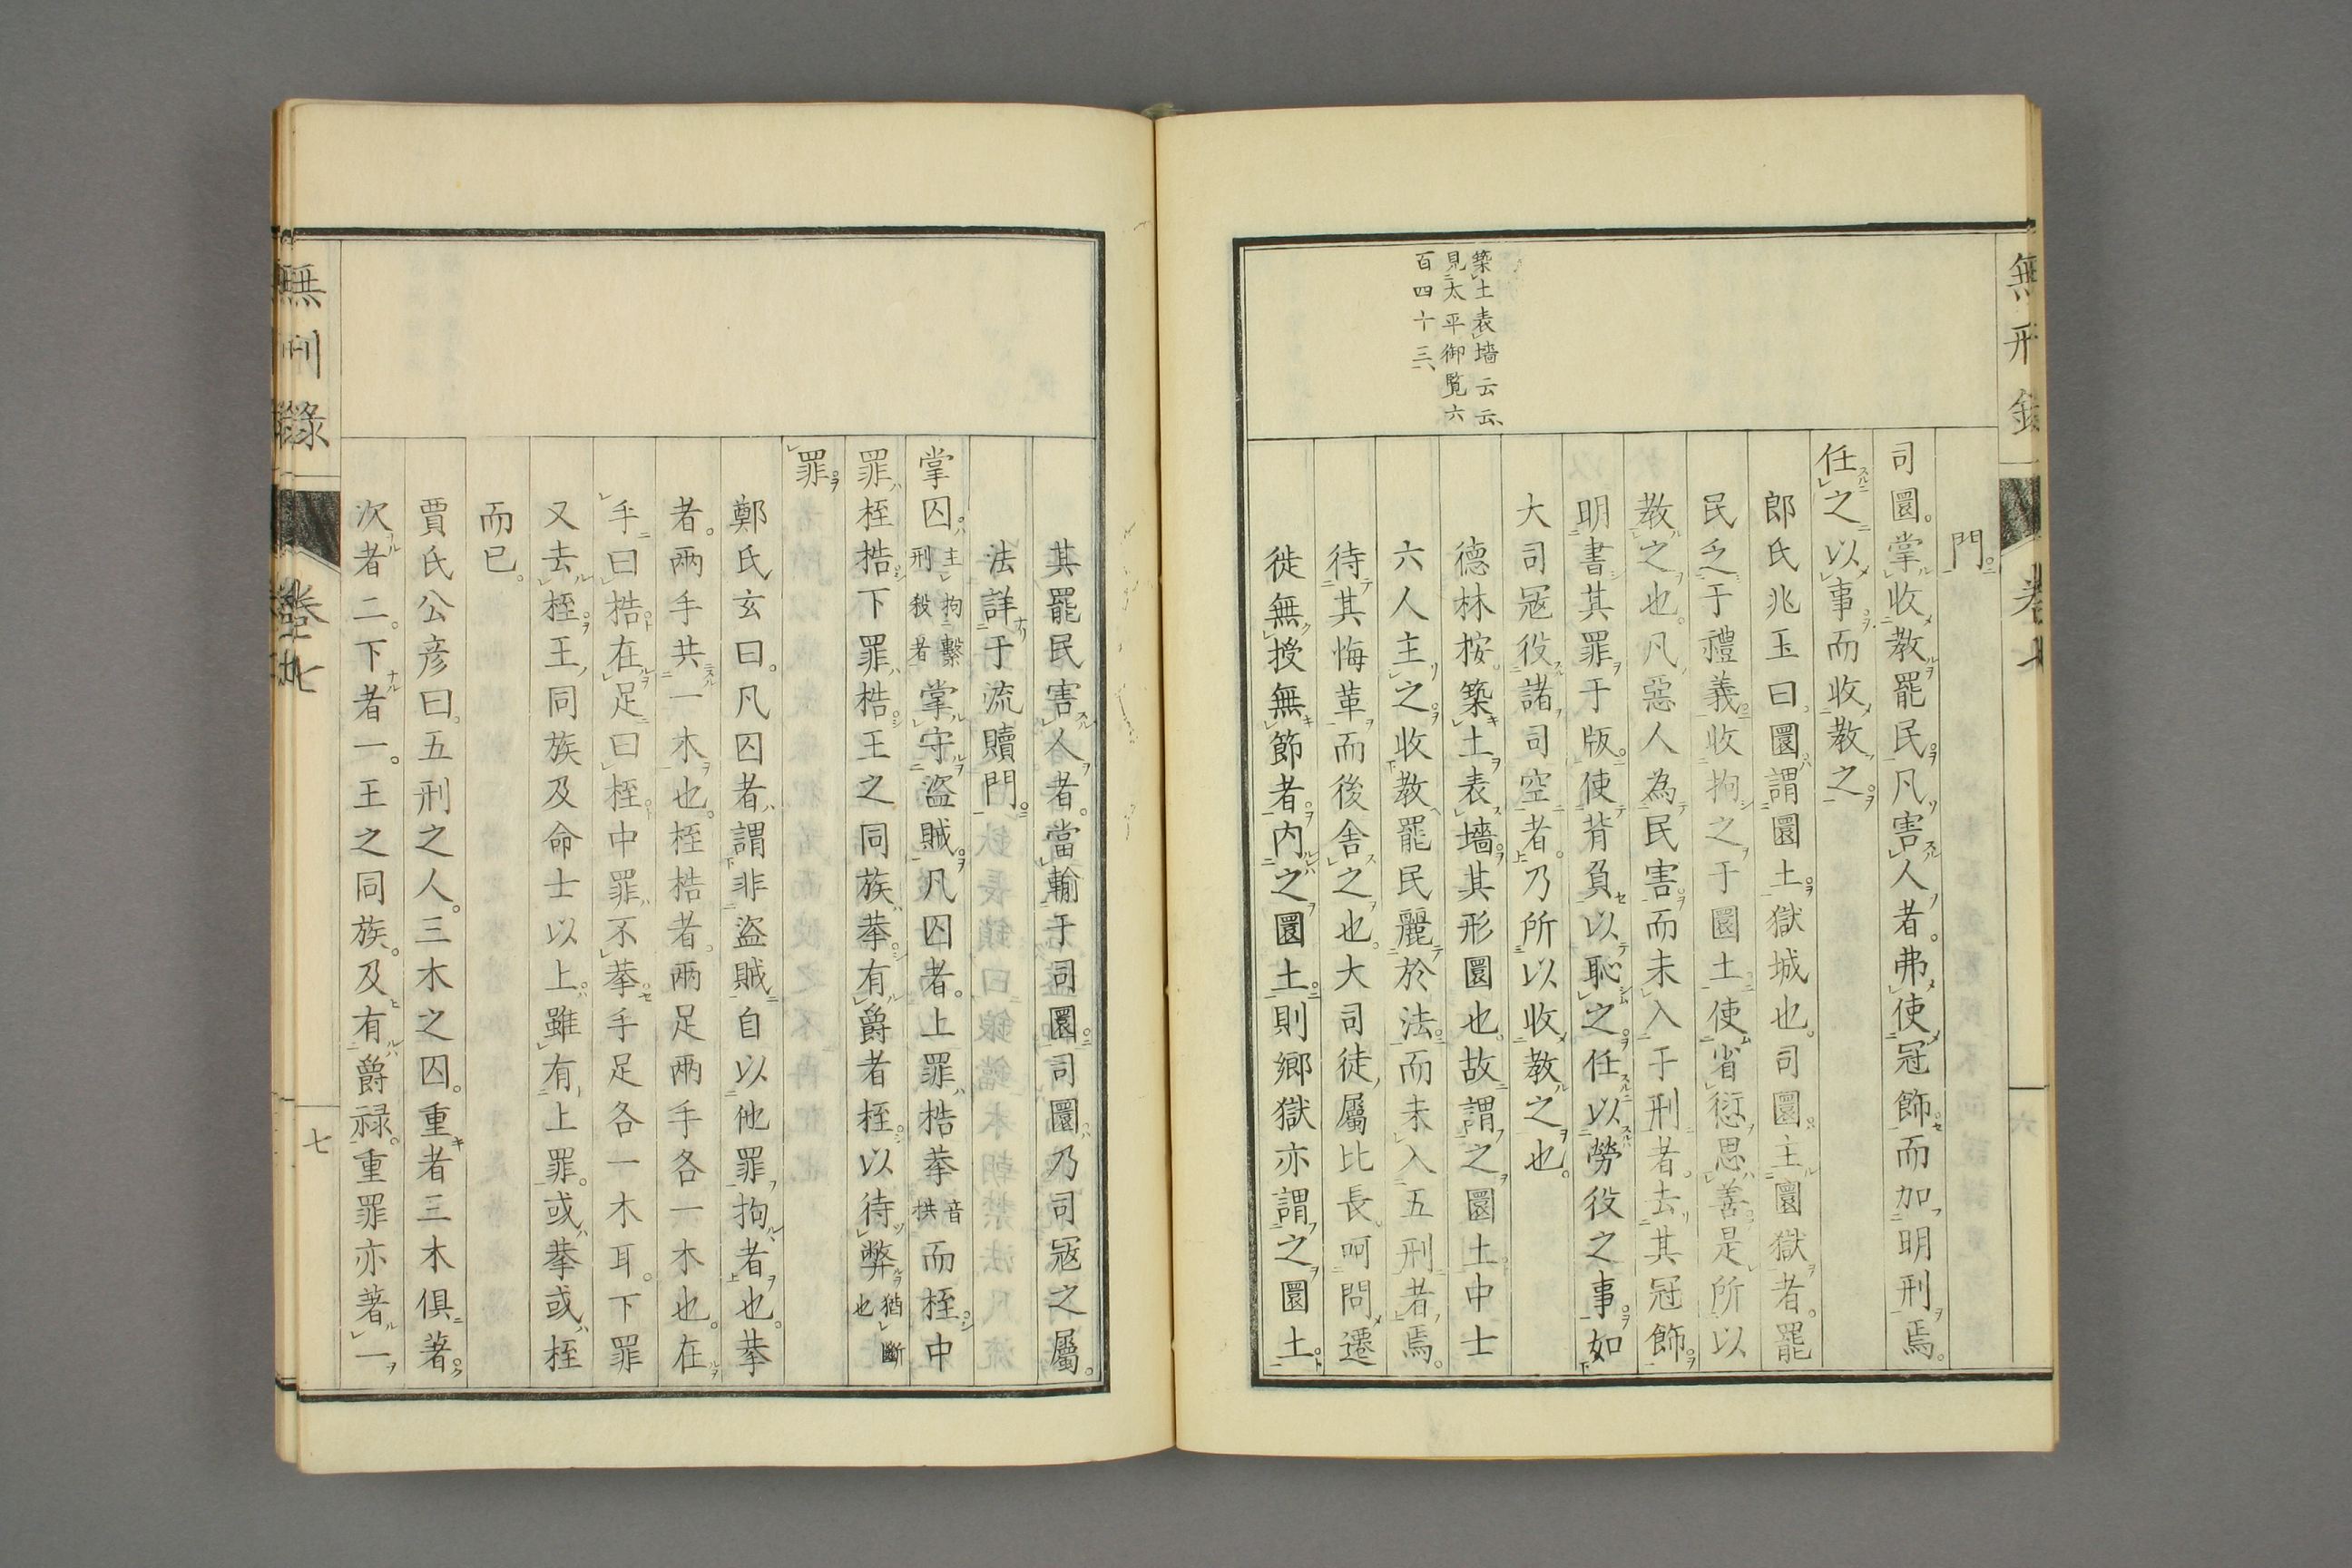 無刑錄
卷七
六
築土表墻云云、
見太平御覧六
百四十三、
門。
司圜。掌收教罷民。凡害人者。弗使冠飾而加明刑焉。
任之以事而收教之。
郎氏兆玉曰。圜謂圜土。獄城也。司圜主圜獄者。罷
民乏于禮義。收拘之于圜土。使省愆思善。是所以
教之也。凡惡人為民害而未入于刑者。去其冠飾。
明書其罪于版。使背負以恥之。任以勞役之事。如
大司冦役諸司空者。乃所以收教之也。
德林按。築土表墻。其形圜也。故謂之圜土。中士
六人主之。收教罷民麗於法。而未入五刑者焉。
待其悔革而後舎之也。大司徒屬比長。呵問遷
徙無授無節者。内之圜土。則鄉獄亦謂之圜土。
其罷民害人者。當輸于司圜。司圜乃司冦之屬。
法詳于流贖門。
掌囚。主拘繫刑殺者掌守盜賊。凡囚者。上罪梏拲音拱而桎。中
罪桎梏。下罪梏。王之同族拲。有爵者桎。以待弊猶斷也
罪。
鄭氏玄曰。凡囚者。謂非盜賊自以他罪拘者也。拲
者。兩手共一木也。桎梏者。兩足兩手各一木也。在
手曰梏。在足曰桎。中罪不拲。手足各一木耳。下罪
又去桎。王同族及命士以上。雖有上罪。或拲或桎
而已。
賈氏公彦曰。五刑之人。三木之囚。重者三木俱著。
次者二。下者一。王之同族。及有爵禄。重罪亦著一
無刑錄
卷七
七